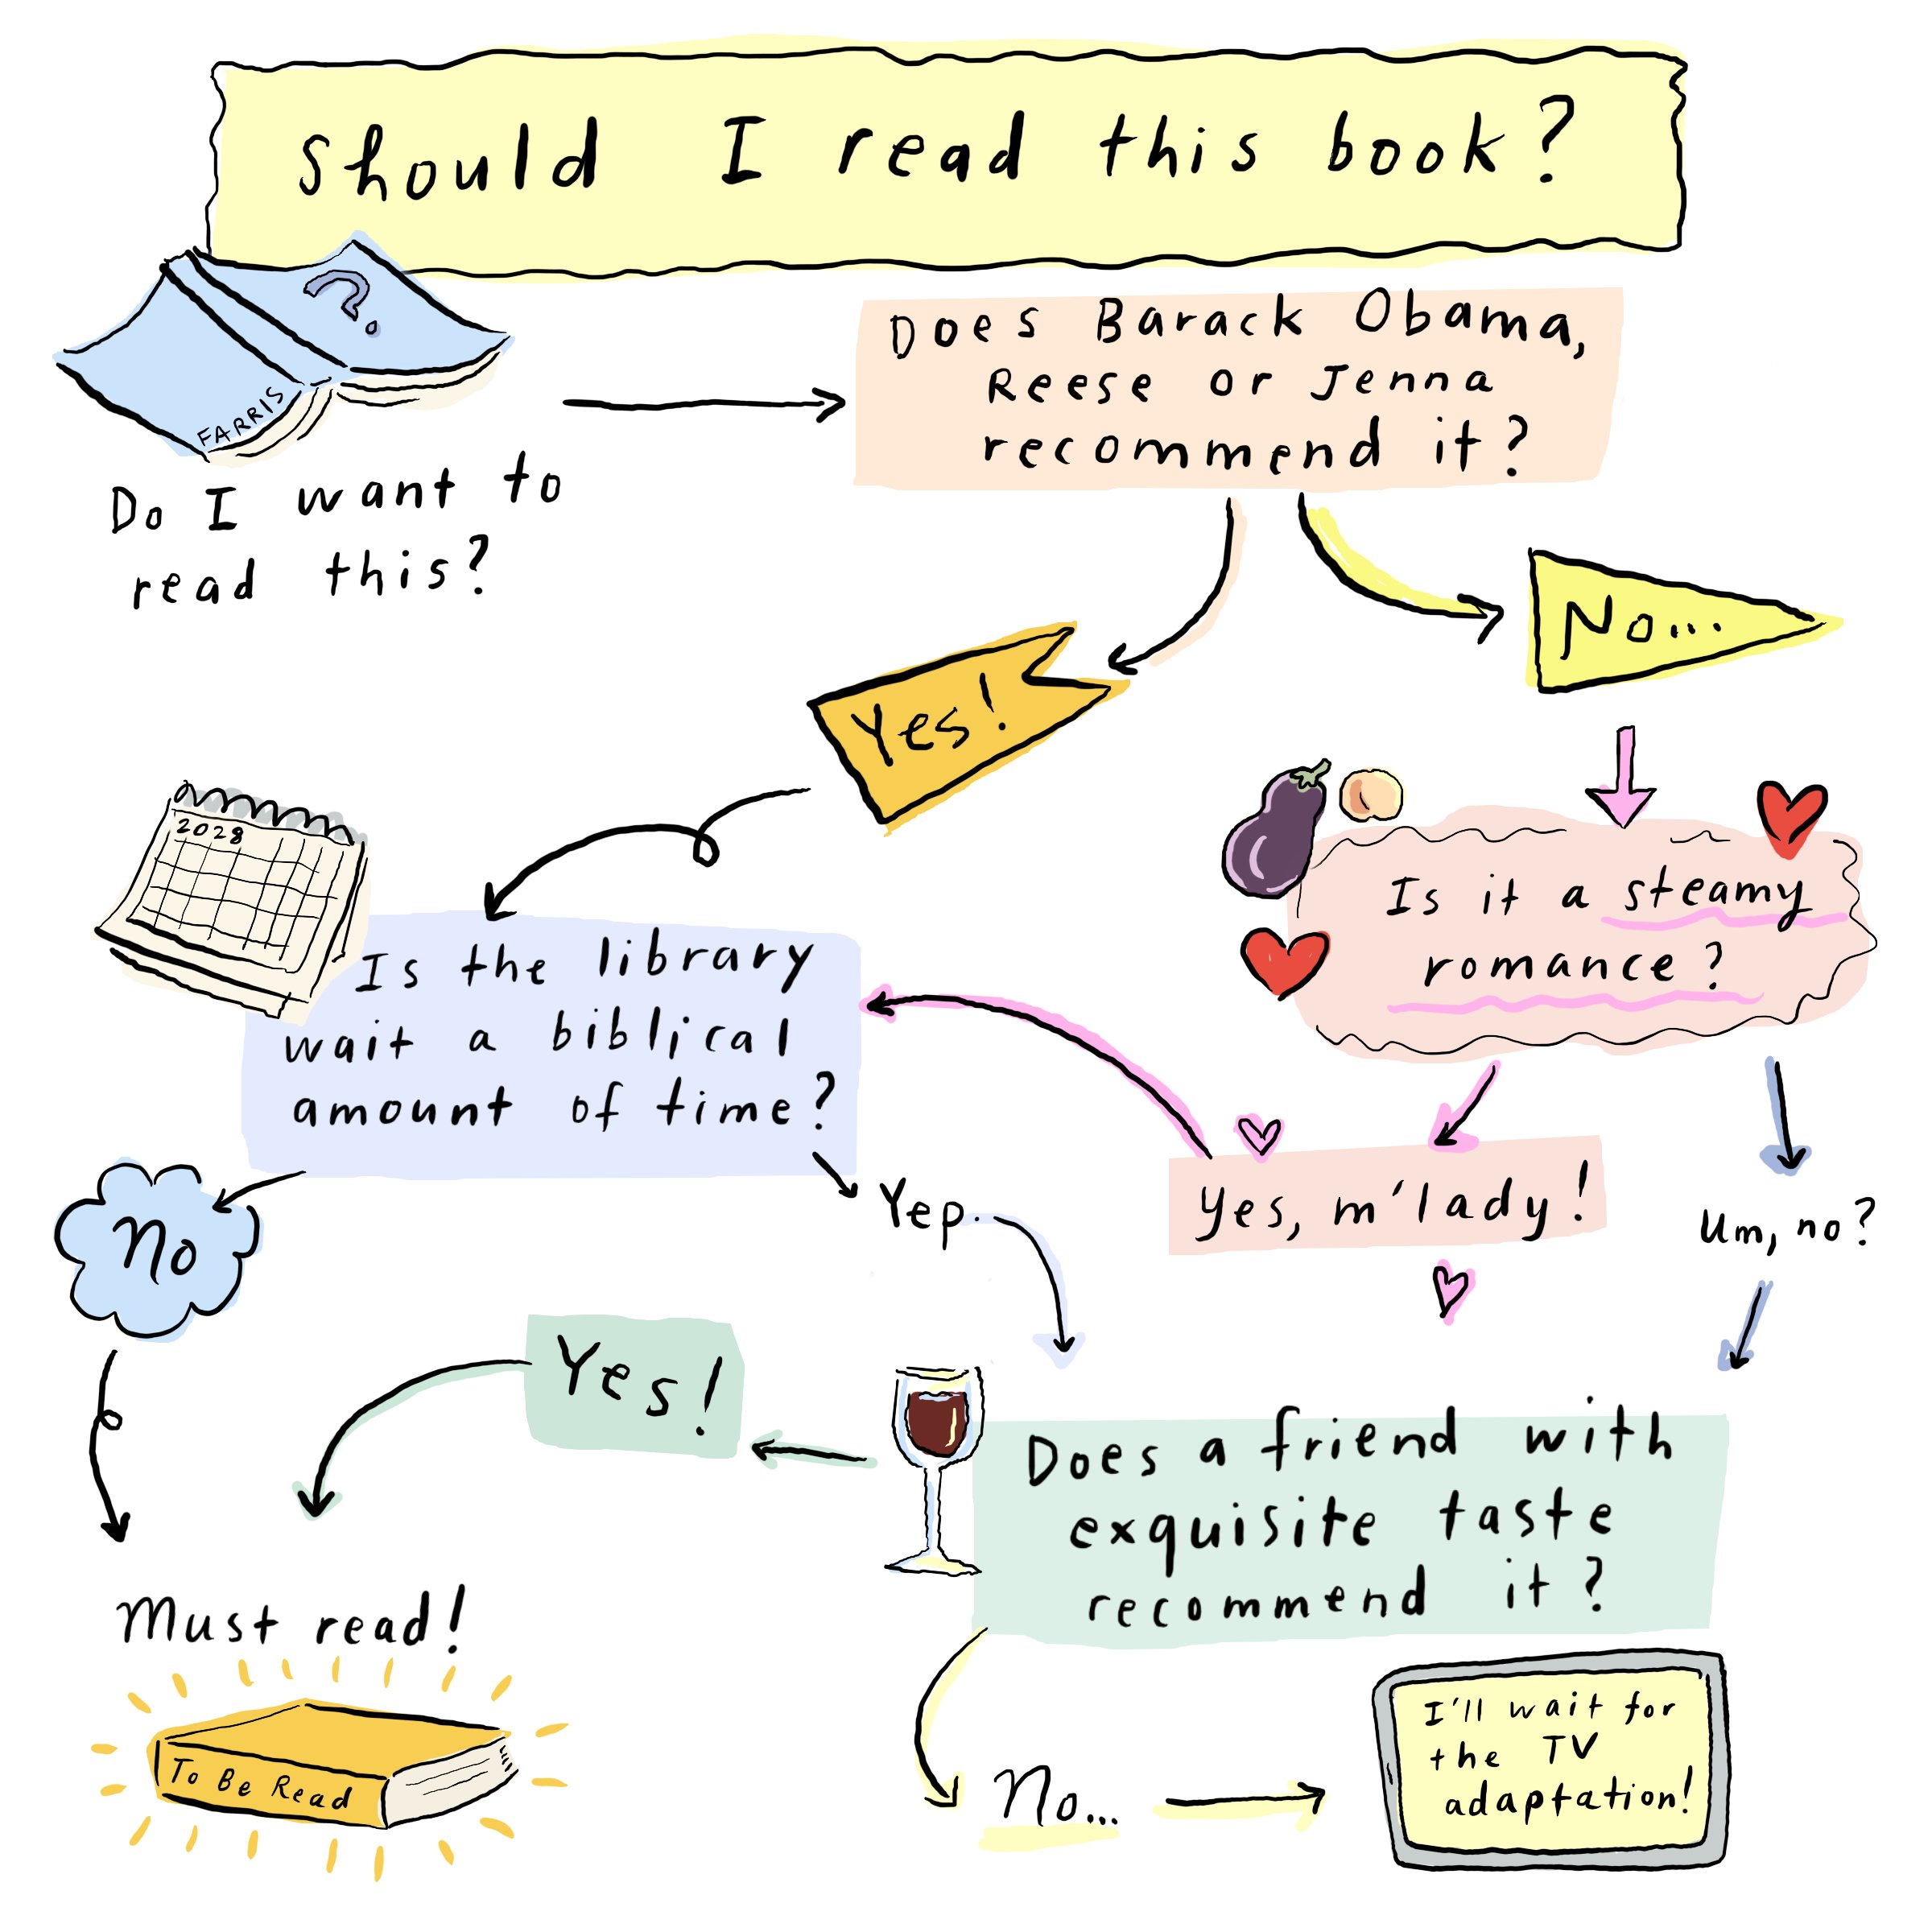 Should I read this book?
FARRIS
Do I want to
read this?
Does Barack Obama,
Reese or Jenna
recommend it?
Yes!
No...
2028
Is it a steamy
romance?
Is the library
wait a biblical
amount of time?
No
Yep.
Yes, m'lady!
Um, no?
Yes!
Does a friend with
exquisite taste
recommend it?
Must read!
To Be Read
No...
I'll wait for
the TV
adaptation!